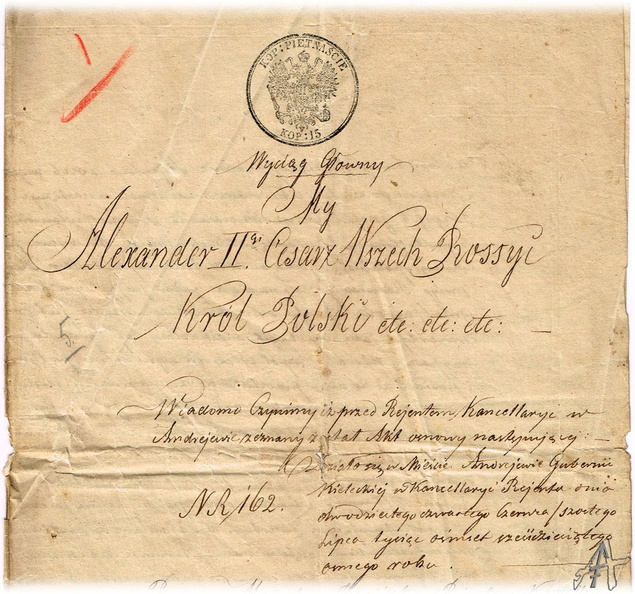 KOP: PIETNAŚCIE
KOP: 15
Wyciąg Główny
My
Alexander II gi. Cesarz Wszech Rossyi
Król Polski etc: etc: etc: —
Wiadomo Czynimy iż przed Rejentem Kancellaryi w
Andrejewie zeznany został Akt osnowy następującej: —
NR 162.
Działo się w Mieście Andrejewie Gubernii
Kieleckiej w Kancellaryi Rejenta dnia
dwudziestego czwartego Czerwca / szóstego
Lipca tysiąc ośmset sześćdziesiątego
ósmego roku.